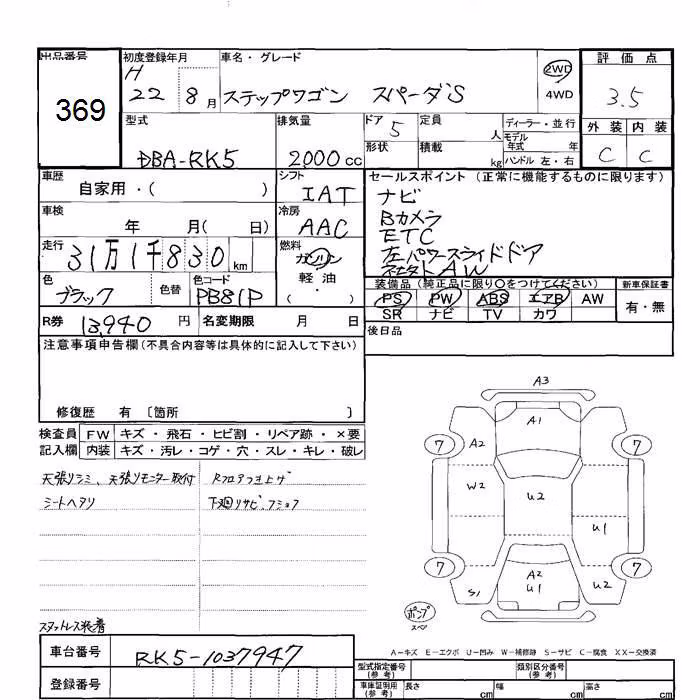 出品番号
369
初度登録年月
H
22 8月
車名・グレード
ステップワゴン スパーダS
2WD
4WD
評価点
3.5
外装 内装
C C
型式
DBA-RK5
排気量
2000cc
ドア 5
形状
定員 人
積載 kg
ディーラー・並行
モデル年式 年
ハンドル 左・右
車歴
自家用・( )
シフト
IAT
車検
年 月( 日)
冷房
AAC
走行
31万1千830km
燃料
ガソリン
軽油
( )
色
ブラック
色替
色コード
PB81P
R券 13,940 円
名変期限 月 日
セールスポイント (正常に機能するものに限ります)
ナビ
Bカメラ
ETC
左パワースライドドア
AW
装備品 (純正品に限り○をつけてください)
PS PW ABS エアB AW
SR ナビ TV カワ
新車保証書
有・無
後日品
注意事項申告欄(不具合内容等は具体的に記入して下さい)
修復歴 有 〔箇所 〕
検査員記入欄
FW キズ・飛石・ヒビ割・リペア跡・×要
内装 キズ・汚レ・コゲ・穴・スレ・キレ・破レ
天張りシミ、天張りモニター取付
シートヘタリ
Rフロアつき上ゲ
下廻リサビ、フショク
スタットレス装着
車台番号
RK5-1037947
登録番号
A3
A1
7 A2 7
W2 U2
U1
7 A2 7
S1 U1 U2
ポンプ
スペア
A-キズ E-エクボ U-凹み W-補修跡 S-サビ C-腐食 XX-交換済
型式指定番号
(参考)
類別区分番号
(参考)
車庫証明用
(参考)
長さ cm
幅 cm
高さ cm